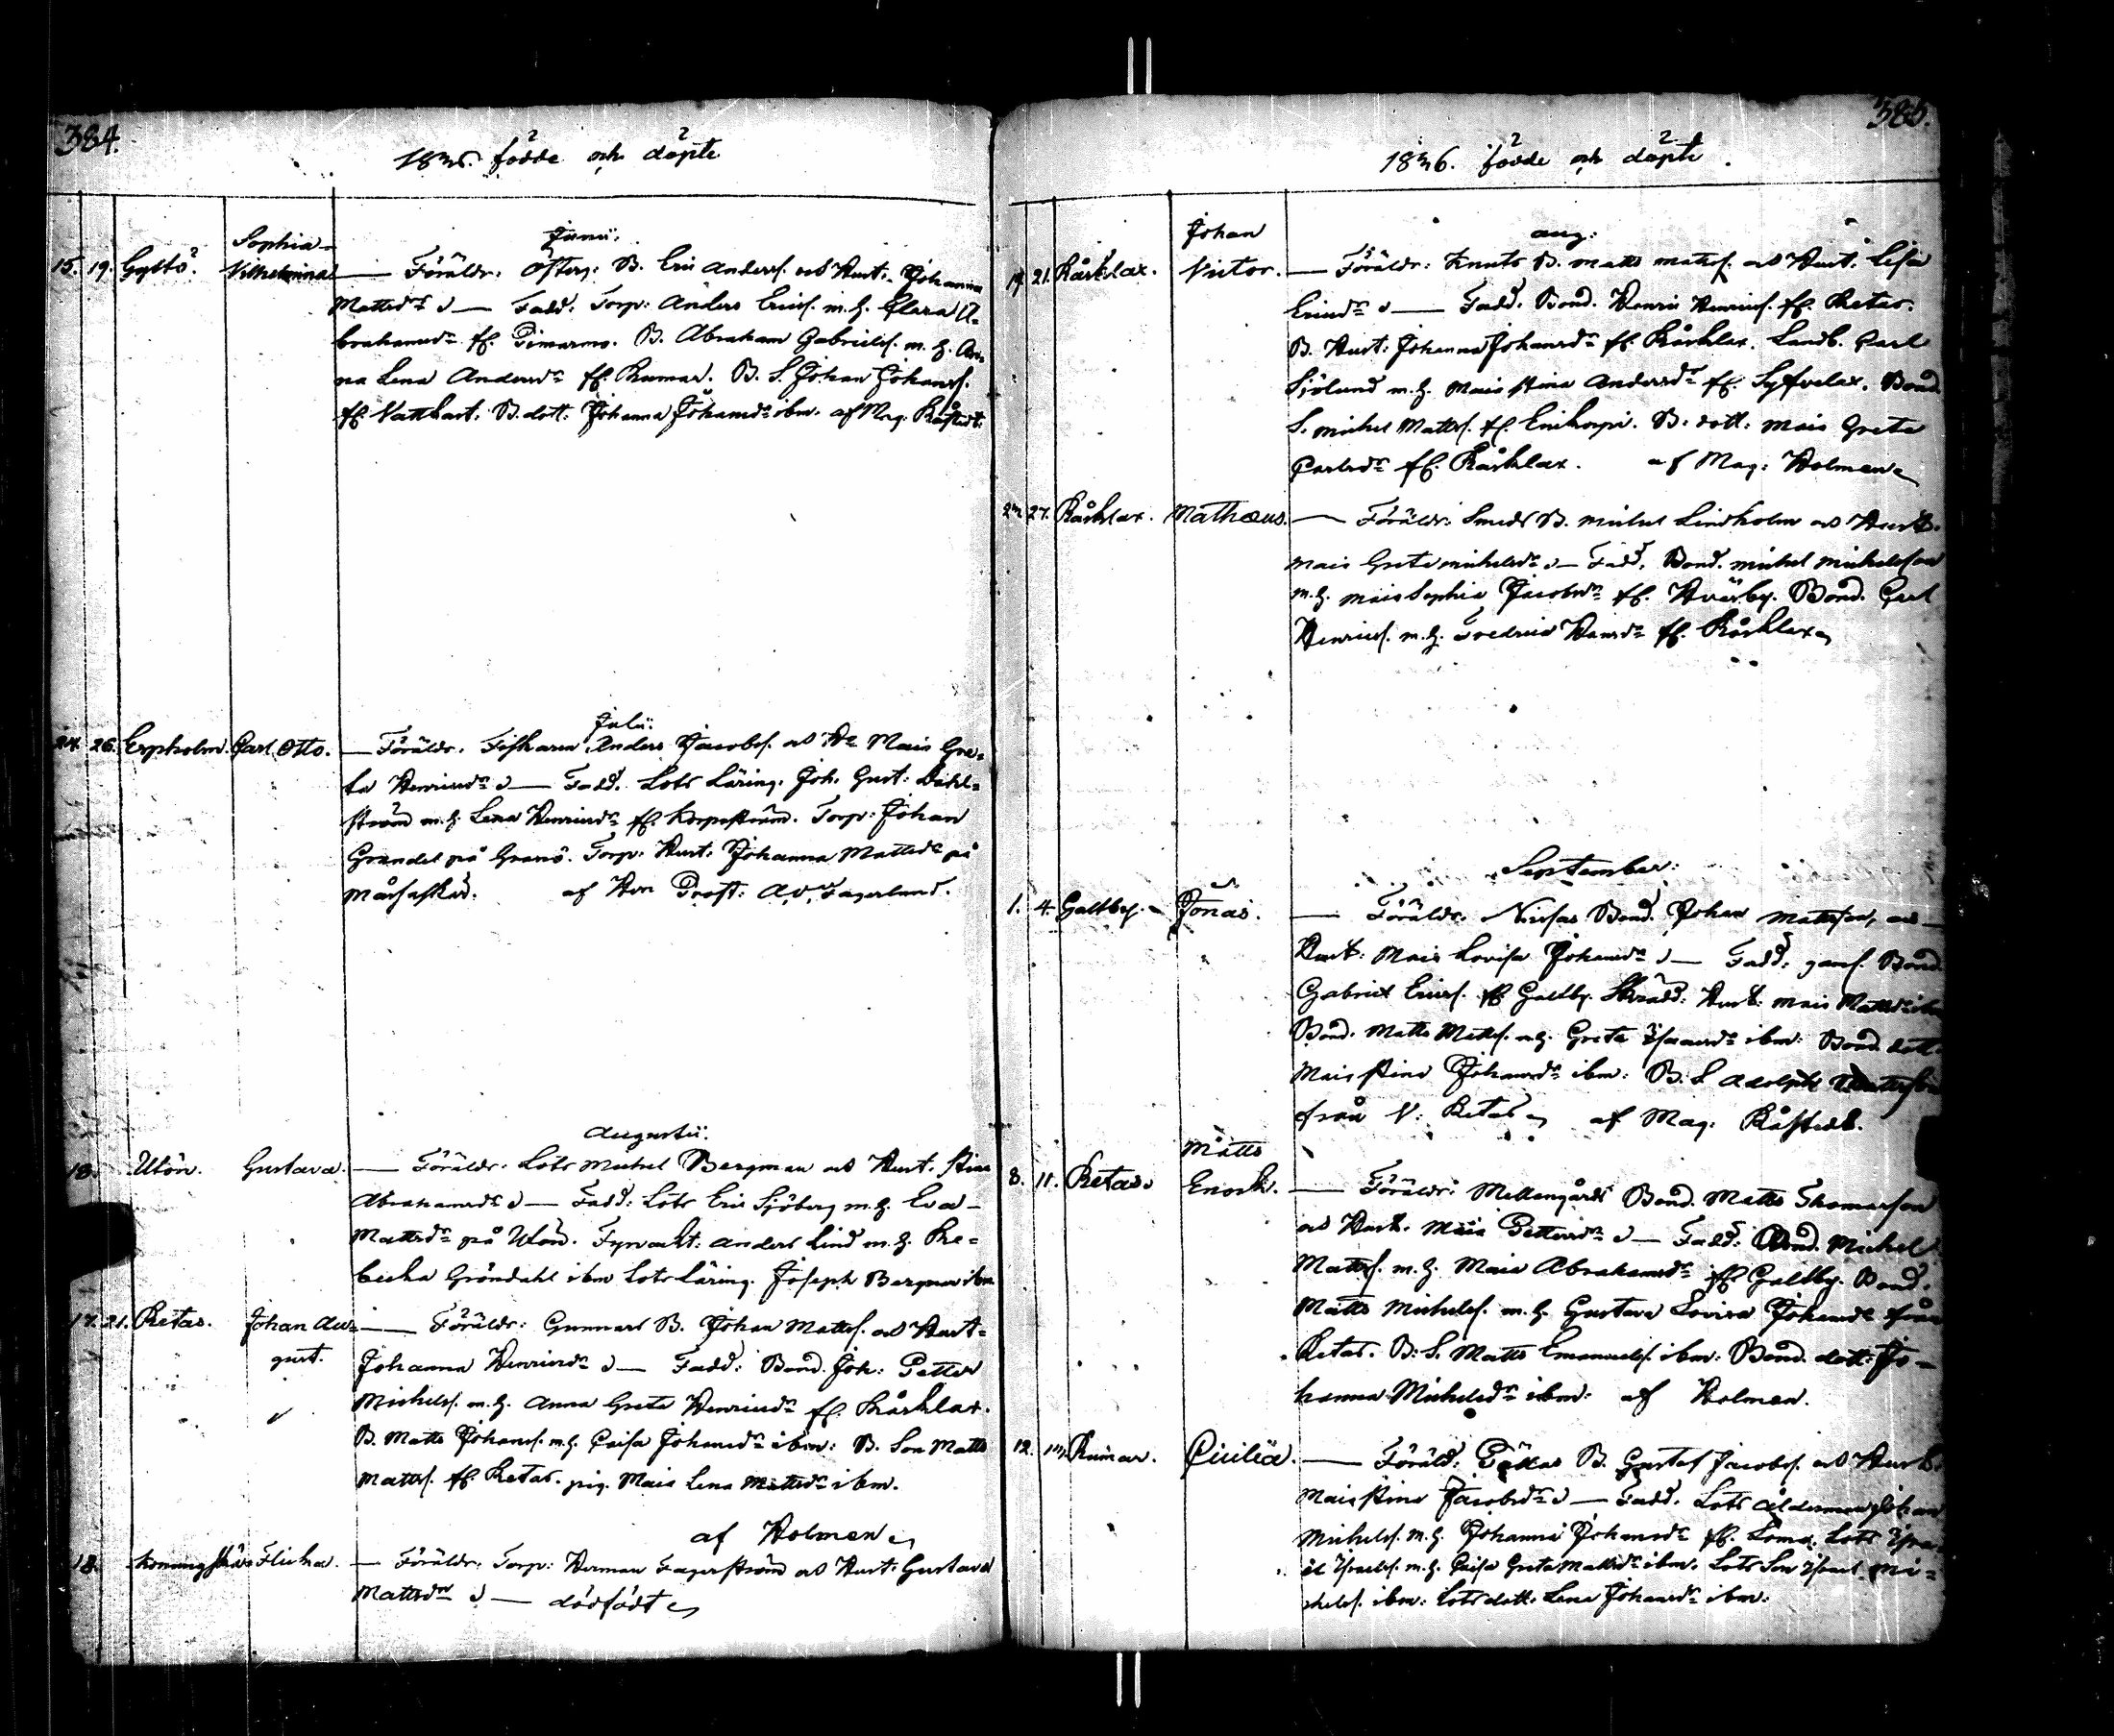 384.
1836. födde och döpte
Junii.
15. 19. Gyltö. Sophia Vilhelmina — Föräldr. Österg: B. Eric Anderss. och Hust: Johanna
Mattsdr — Fadd: Torp: Anders Ericss. m.h. Clara A-
brahamsdr fr. Dimarno. B. Abraham Gabrielss. m.h. An-
na Lena Andersdr fr. Rumar. B. S. Johan Johanss.
fr. Vattkast. B. dott: Johanna Johansdr ibm. af Mag. Råstedt.
Julii.
24. 26. Erpholm. Carl Otto. — Föräldr. Fiskaren Anders Jacobss. och H. Mais Gre-
ta Henricsdr — Fadd. Lots Läring. Joh. Gust: Dahl-
ström m.h. Lena Henricsdr fr. Korpoström. Torp: Johan
Grandel på Granö. Torp: Hust: Johanna Mattsdr på
Mårsaskär. af Herr Prost: A.V. Fagerlund.
Augustii.
13. Utön. Gustava. — Föräldr. Lots Michel Bergman och Hust. Stina
Abrahamsdr — Fadd: Lots Eric Sjöberg m.h. Eva
Mattsdr på Utön. Fyrvakt: Anders Lind m.h. Re-
becka Gröndahl ibm Lots Läring. Joseph Bergman ibm
17. 21. Retas. Johan Au- — Föräldr: Gunnars B. Johan Mattss. och Hust-
gust. Johanna Henricsdr — Fadd: Bond. Joh: Petter
Michelss. m.h. Anna Greta Henricsdr fr. Kårklax.
B. Matts Johanss. m.h. Caisa Johansdr ibm: B. Son Matts
Mattss. fr Retas. pig. Maia Lena Mattsdr ibm.
af Holmen
18. Flicka. — Föräldr: Torp: Herman Fagerström och Hust: Gustava
Mattsdr — dödfödt
385.
1836. födde och döpte.
Aug:
19. 21. Kårklax. Johan Victor. — Föräldr: Knuts B. Matts Matss. och Hust: Lisa
Ericsdr — Fadd. Bond. Henric Henricss. fr. Retas.
B. Hust: Johanna Johansdr fr Kårklax. Landb. Carl
Sjölund m.h. Mais Stina Andersdr fr. Syfvelax. Bond.
S. Michel Mattss. fr. Enikorpi. B. dott. Mais Greta
Carlsdr fr. Kårklax. af Mag: Holmen
27. Kårklax. Mathæus. — Föräldr: Smeds B. Michel Lindholm och Hust.
Mais Greta Michelsdr — Fadd. Bond. Michel Michelsson
m.h. Mais Sophia Jacobsdr fr. Hväsby. Bond. Carl
Henricss. m.h. Fredrica Hansdr fr. Kårklax
September:
1. 4. Galtby. Jonas. — Föräldr. Nissas Bond. Johan Mattsson, och
Hust: Mais Lovisa Johansdr — Fadd: Bond
Gabriel Ericss. fr Galtby. Skrädd: Hust: Mais Mattsdr ibm
Bond. Matts Mattss. m.h. Greta Isaacsdr ibm: Bond. dott.
Mais Stina Johansdr ibm: B. S. Adolph
från V: Retas af Mag. Råstedt.
8. 11. Retas. Matts Enock. — Föräldr: Mellangårds Bond. Matts Thomasson
och Hust. Maia Pettersdr — Fadd: Bond. Michel
Mattss. m.h. Maia Abrahamsdr fr Galtby. Bond.
Matts Michelss. m.h. Gustava Lovisa Johansdr från
Retas. B. S. Matts Emanuelss. ibm: Bond. dott: Jo-
hanna Michelsdr ibm: af Holmen.
12. Rumar. Cicilia. — Föräld: B. Gustaf Jacobss. och Hust.
Mais Stina Jacobsdr — Fadd. Lots ålderman Johan
Michelss. m.h. Johanna Johansdr fr. Loma. Lots Isra-
el Israelss. m.h. Caisa Greta Mattsdr ibm. Lots Son Israel Mi-
chelss. ibm: Lots dott. Lena Johansdr ibm: